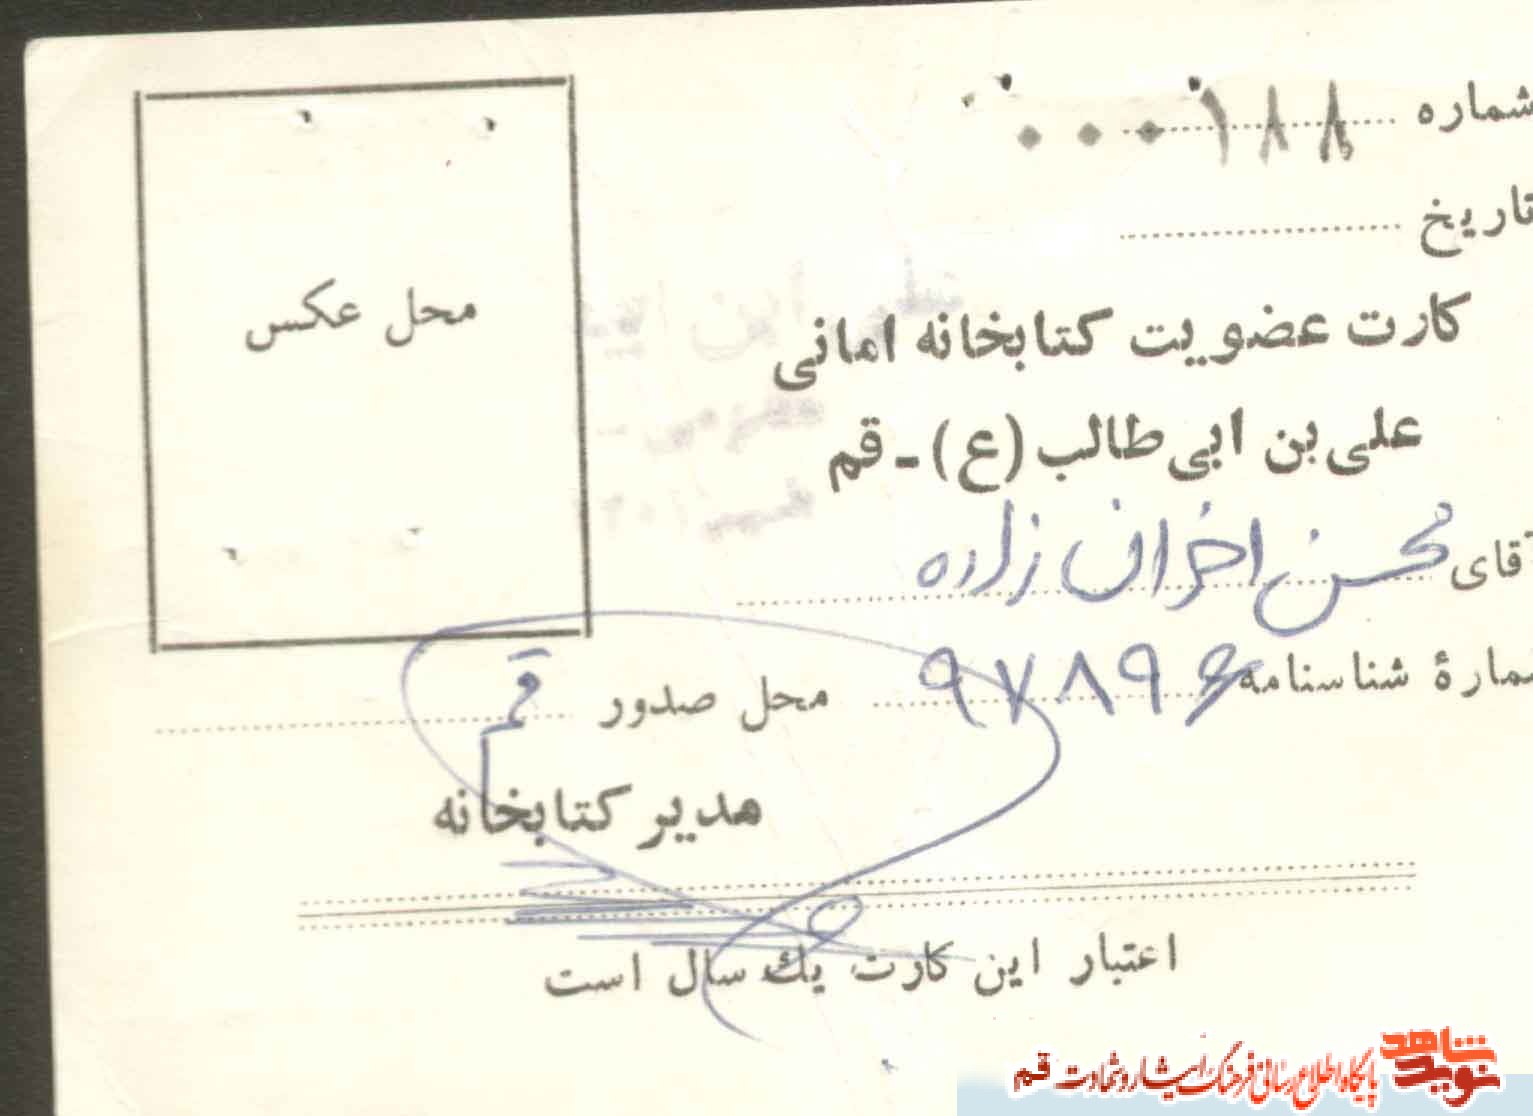 شماره ۰۰۰۱۸۸
تاریخ
کارت عضویت کتابخانه امانی
علی بن ابی طالب (ع) - قم
آقای محسن اخوان زاده
شمارهٔ شناسنامه ۹۷۸۹۶ محل صدور قم
محل عکس
مدیر کتابخانه
اعتبار این کارت یک سال است
نوید شاهد
پایگاه اطلاع رسانی فرهنگ ایثار و شهادت قم